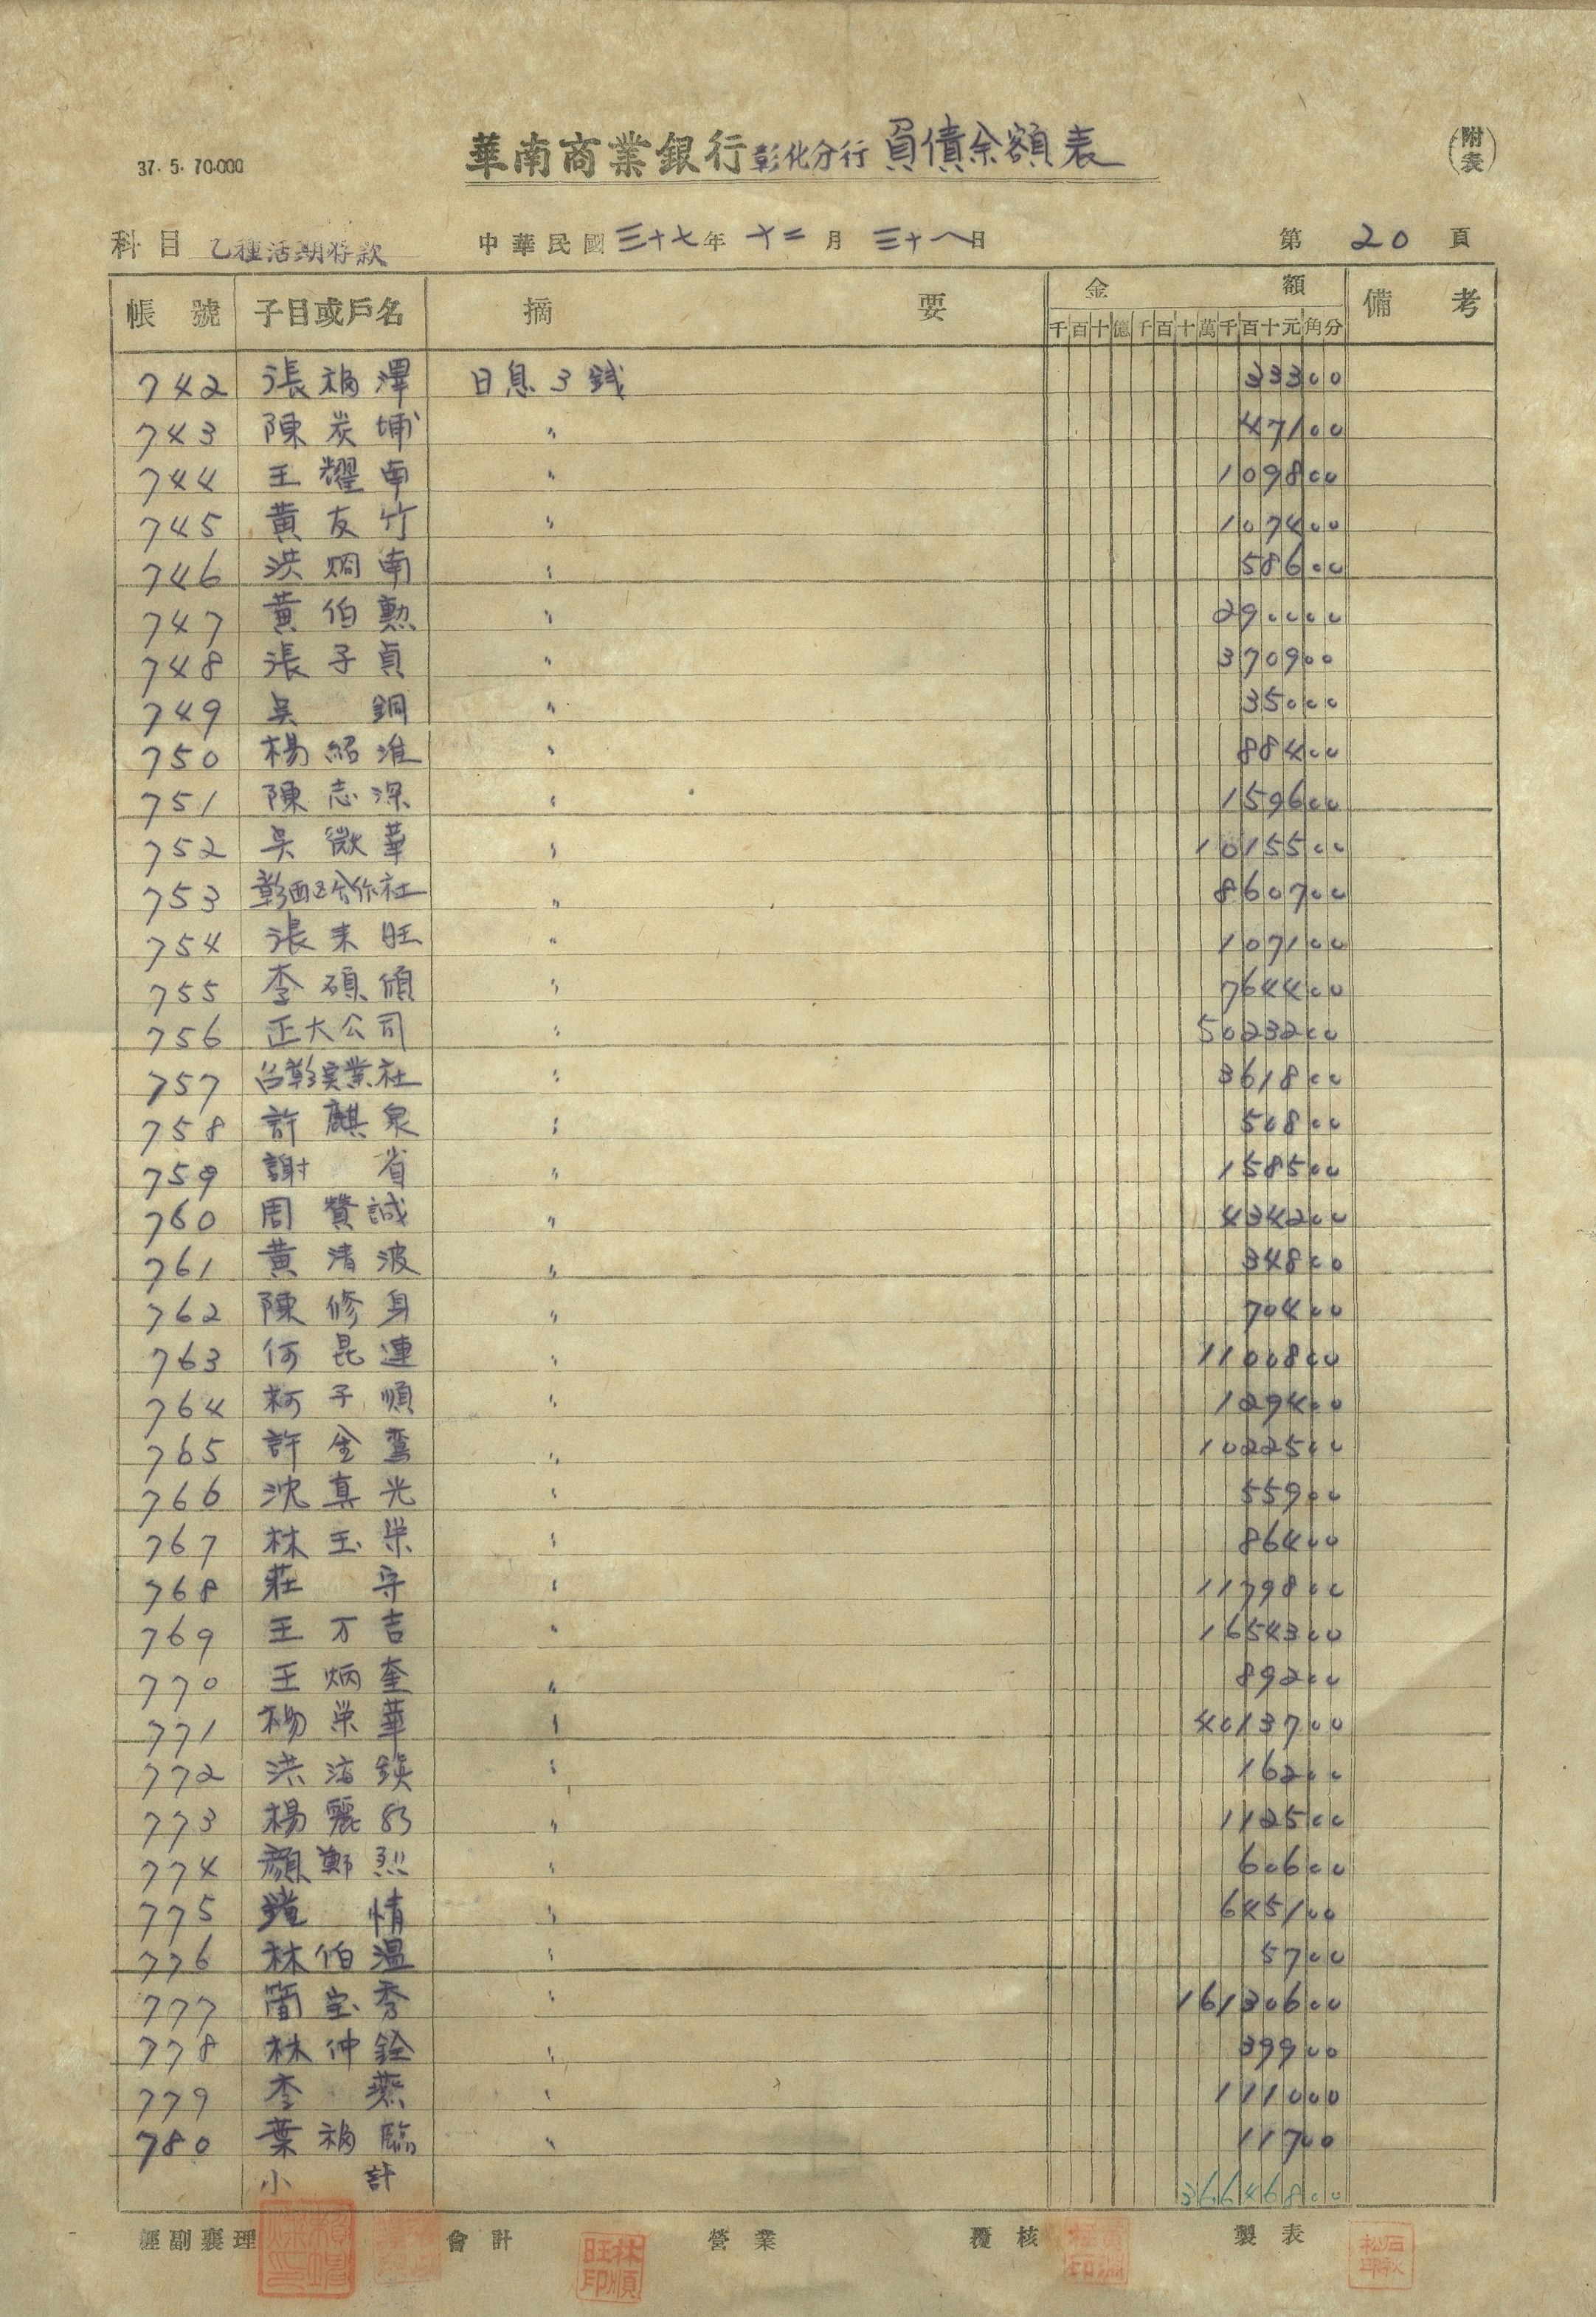 37. 5. 70.000
華南商業銀行彰化分行 負債余額表
(附表)
科目 乙種活期存款 中華民國三十七年 十二 月 三十一日 第 20 頁
帳號 子目或戶名 摘要 金額 備考
千百十億千百十萬千百十元角分
742 張福澤 日息3錢 33300
743 陳炭埔 〃 47100
744 王耀南 〃 109800
745 黃友竹 〃 107400
746 洪烱南 〃 58600
747 黃伯勲 〃 290000
748 張子貞 〃 370900
749 吳 銅 〃 35000
750 楊紹淮 〃 88400
751 陳志深 〃 159600
752 吳微華 〃 1015500
753 彰西区合作社 〃 860700
754 張来旺 〃 107100
755 李碩頎 〃 764400
756 正大公司 〃 5023200
757 台彰実業社 〃 361800
758 許麒泉 〃 50800
759 謝 省 〃 158500
760 周贊誠 〃 434200
761 黃清波 〃 34800
762 陳修身 〃 70400
763 何昆連 〃 1100800
764 柯子順 〃 129400
765 許金鸞 〃 1022500
766 沈真光 〃 55900
767 林玉栄 〃 86400
768 莊 守 〃 1179800
769 王万吉 〃 1654300
770 王炳奎 〃 89200
771 楊栄華 〃 4013700
772 洪海鍈 〃 16200
773 楊麗 〃 112500
774 顏鄭烈 〃 60600
775 鐘 情 〃 645100
776 林伯温 〃 5700
777 簡宝秀 〃 16130600
778 林仲銓 〃 39900
779 李 燕 〃 111000
780 葉福臨 〃 11700
小 計 36646800
經副襄理 會計 營業 覆核 製表
林順旺印